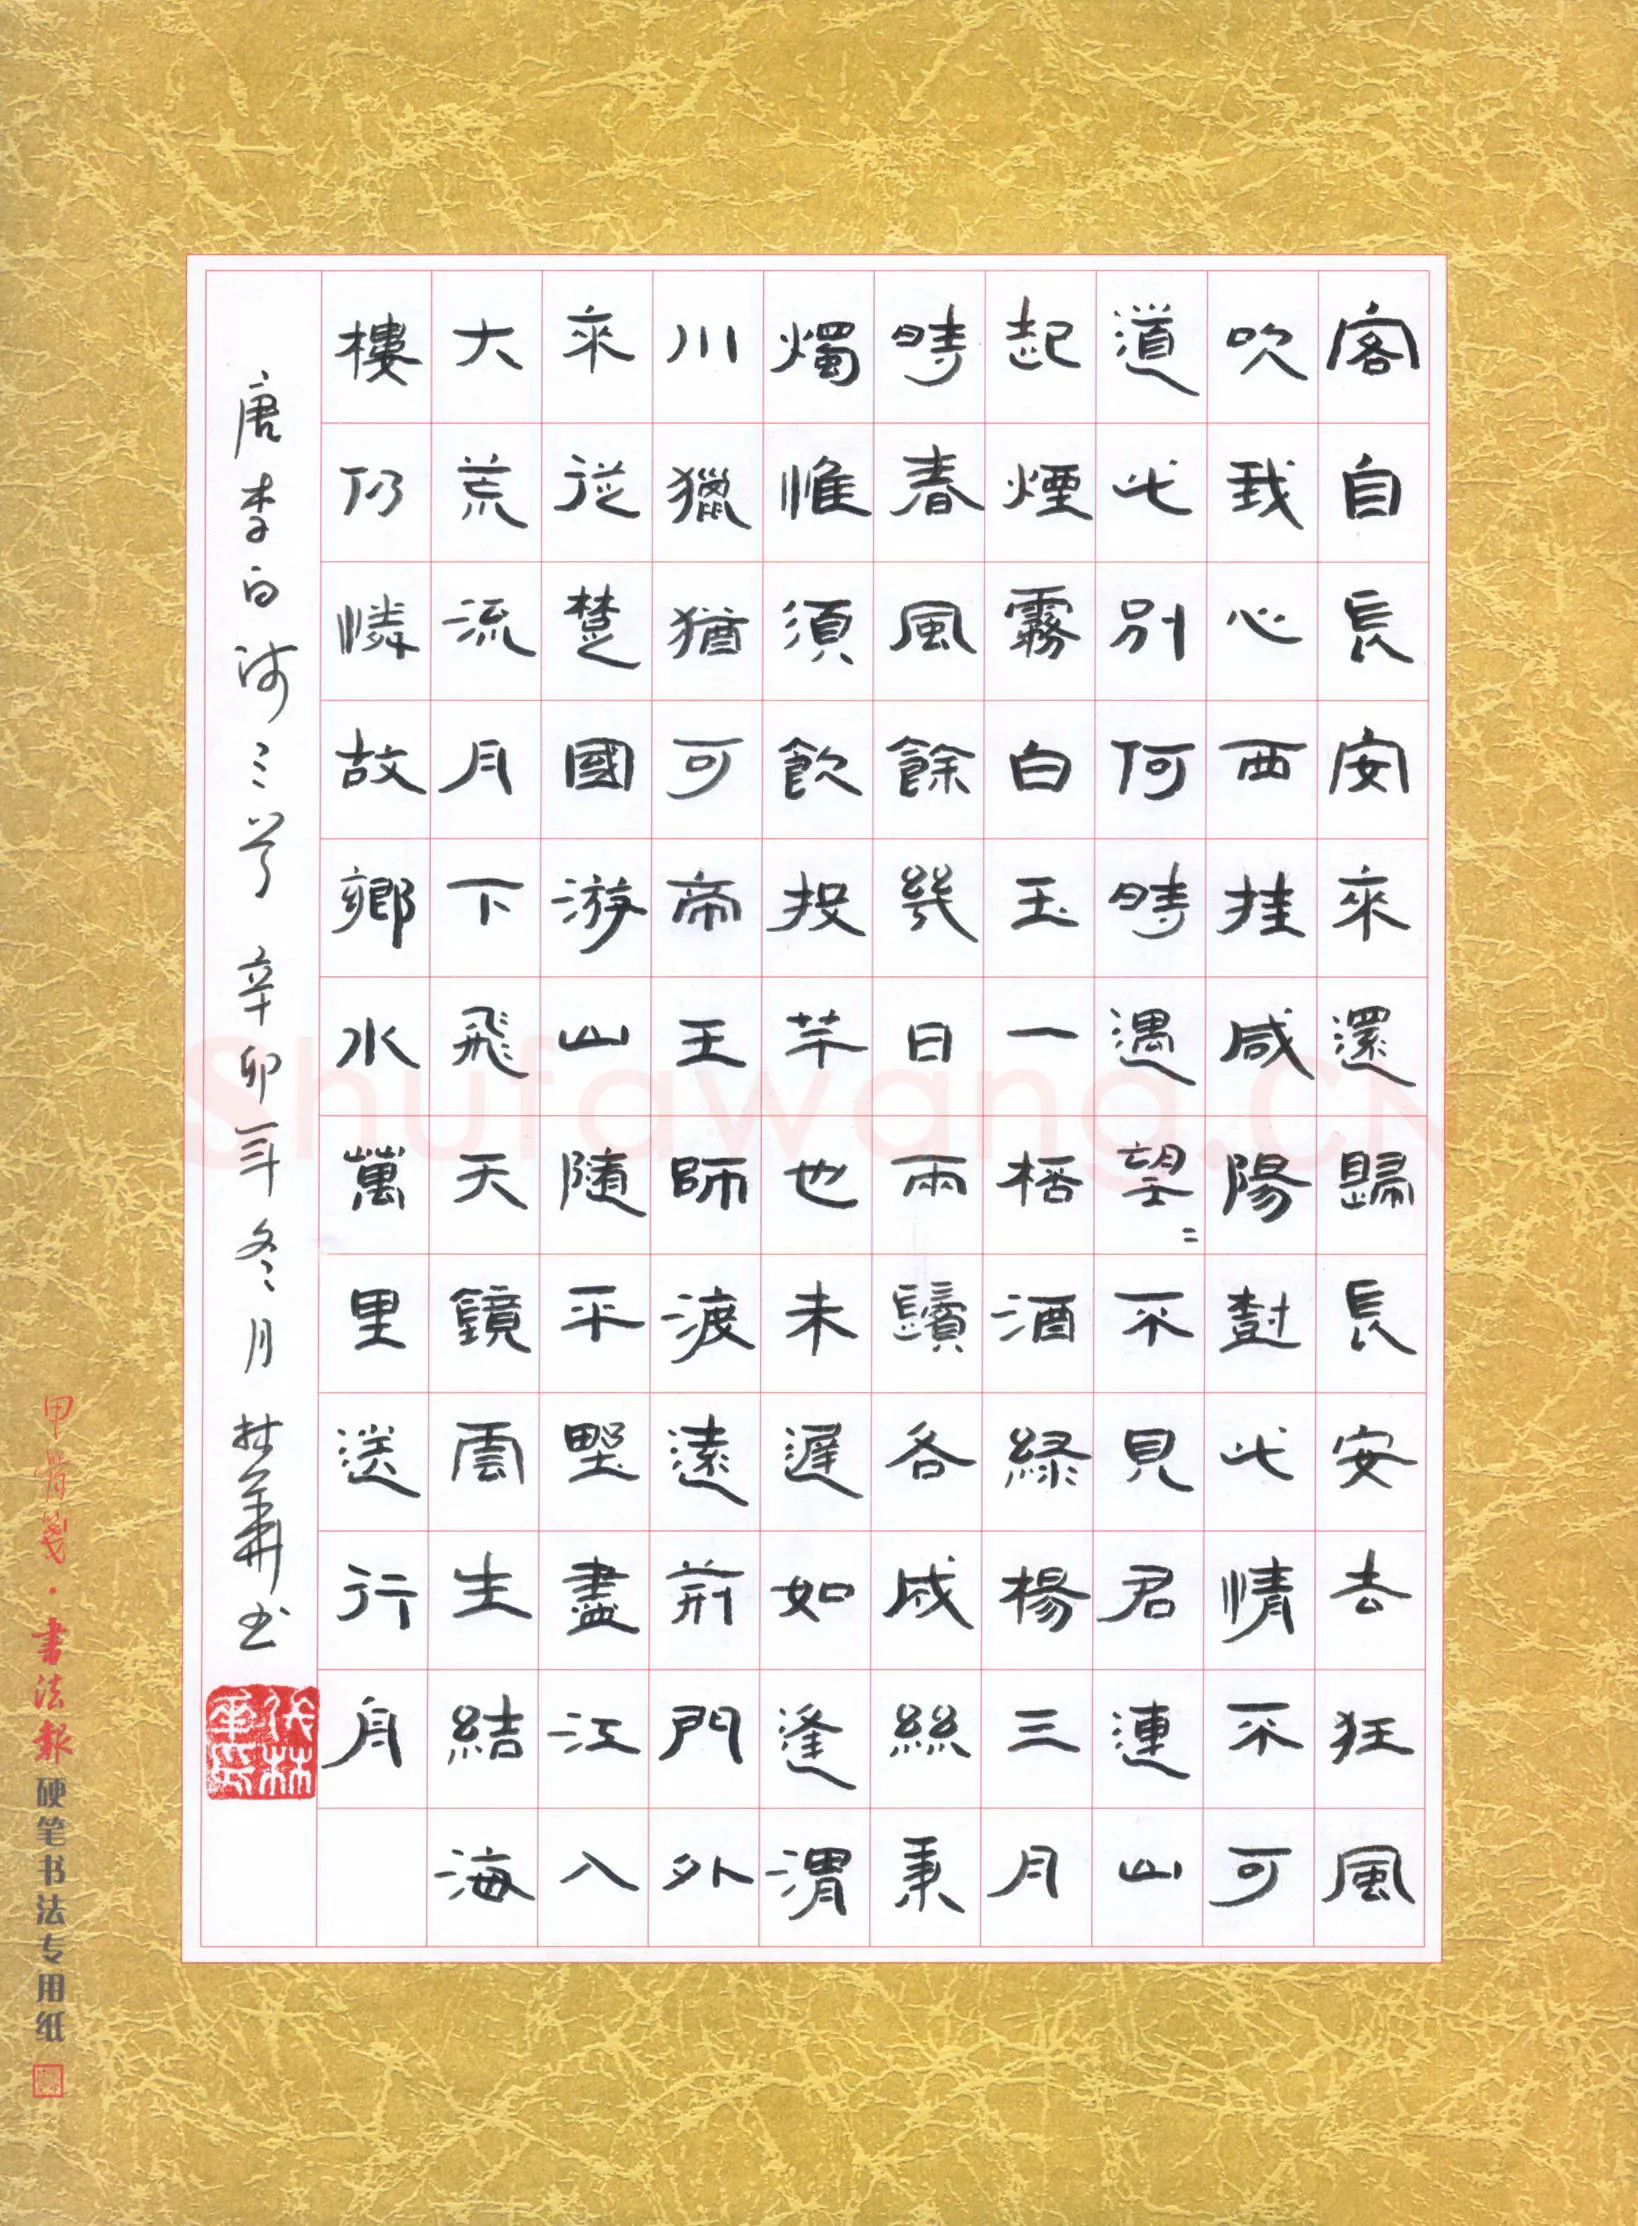 客自長安來還歸長安去狂風
吹我心西挂咸陽樹此情不可
道此別何時遇望〻不見君連山
起煙霧白玉一桮酒緑楊三月
時春風餘幾日兩鬢各成絲秉
燭惟須飲投竿也未遲如逢渭
川獵猶可帝王師渡遠荊門外
來從楚國游山隨平野盡江入
大荒流月下飛天鏡雲生結海
樓仍憐故鄉水萬里送行舟
唐李白詩三首 辛卯年冬月 林華书
甲骨箋·書法報硬笔书法专用纸
Shufawang.CN